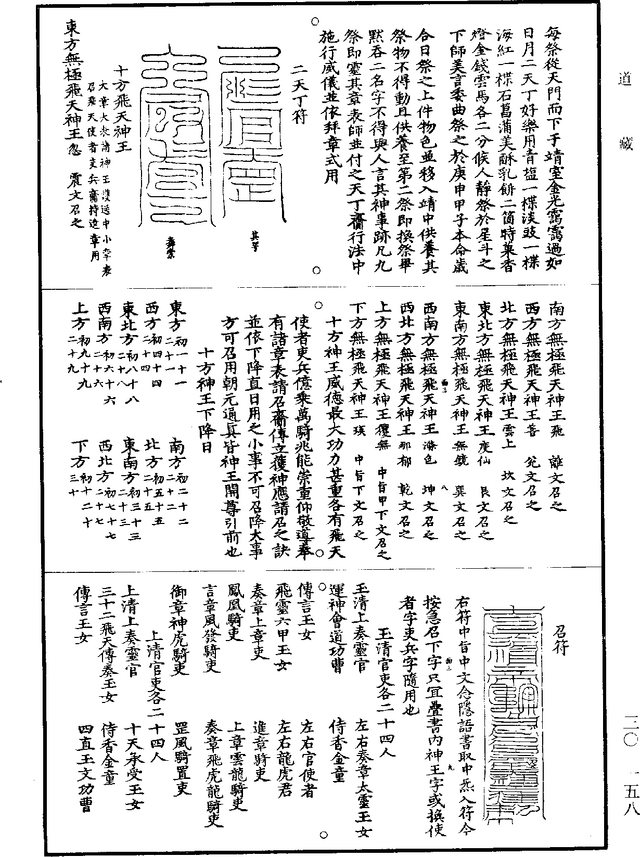 道藏
三〇—一五八
每祭從天門而下于靖室金光靄靄過如
日月二天丁好樂用青𥂁一楪淡豉一楪
海紅一楪石菖蒲美酥乳餅二箇時菓香
燈金錢雲馬各二分候人靜祭於星斗之
下師美言委曲祭之於庚申甲子本命歲
合日祭之上件物色並移入靖中供養其
祭物不得動且供養至第二祭即換祭畢
默吞二名字不得與人言其神事跡凡九
祭即靈其章表師並付之天丁齋行法中
施行威儀並依拜章式用
二天丁符
十方飛天神王
東方無極飛天神王忽 震文召之
南方無極飛天神王飛 離文召之
西方無極飛天神王香 兌文召之
北方無極飛天神王雲上 坎文召之
東北方無極飛天神王度仙 艮文召之
東南方無極飛天神王無號 巽文召之
西南方無極飛天神王 色 坤文召之
西北方無極飛天神王那郁 乾文召之
上方無極飛天神王玃無 中旨甲下文召之
下方無極飛天神王瑛 中旨下文召之
十方神王威德最大功力甚重各有飛天
使者吏兵億乘萬騎兆能崇重仰敬道奉
有諸章表請召齋傳立獲神應請召之訣
並依下降直日用之小事不可召降大事
方可召用朝元通真皆神王開尊引前也
十方神王下降日
東方初一十一二十一
南方初二十二二十二
西方初四十四二十四
北方初五十五二十五
東北方初八十八二十八
東南方初三十三二十三
西南方初六十六二十六
西北方初七十七二十七
上方初九十九二十九
下方初十二十三十
召符
右符中旨中文念隱語書取中炁入符令
按急召下字只宜疊書內神王字或換使
者字吏兵字隨用也
玉清官吏各二十四人
玉清上奏靈官 左右奏章太靈玉女
運神會道功曹 侍香金童
傳言玉女 左右官使者
飛靈六甲玉女 左右龍虎君
奏章上章吏 進章騎吏
鳳凰騎吏 上章雲龍騎吏
言章風發騎吏 奏章飛虎龍騎吏
御章神虎騎吏 罡風騎置吏
上清官吏各二十四人
上清上奏靈官 十天承受玉女
三十二飛天傳奏玉女 侍香金童
傳言玉女 四直玉文功曹